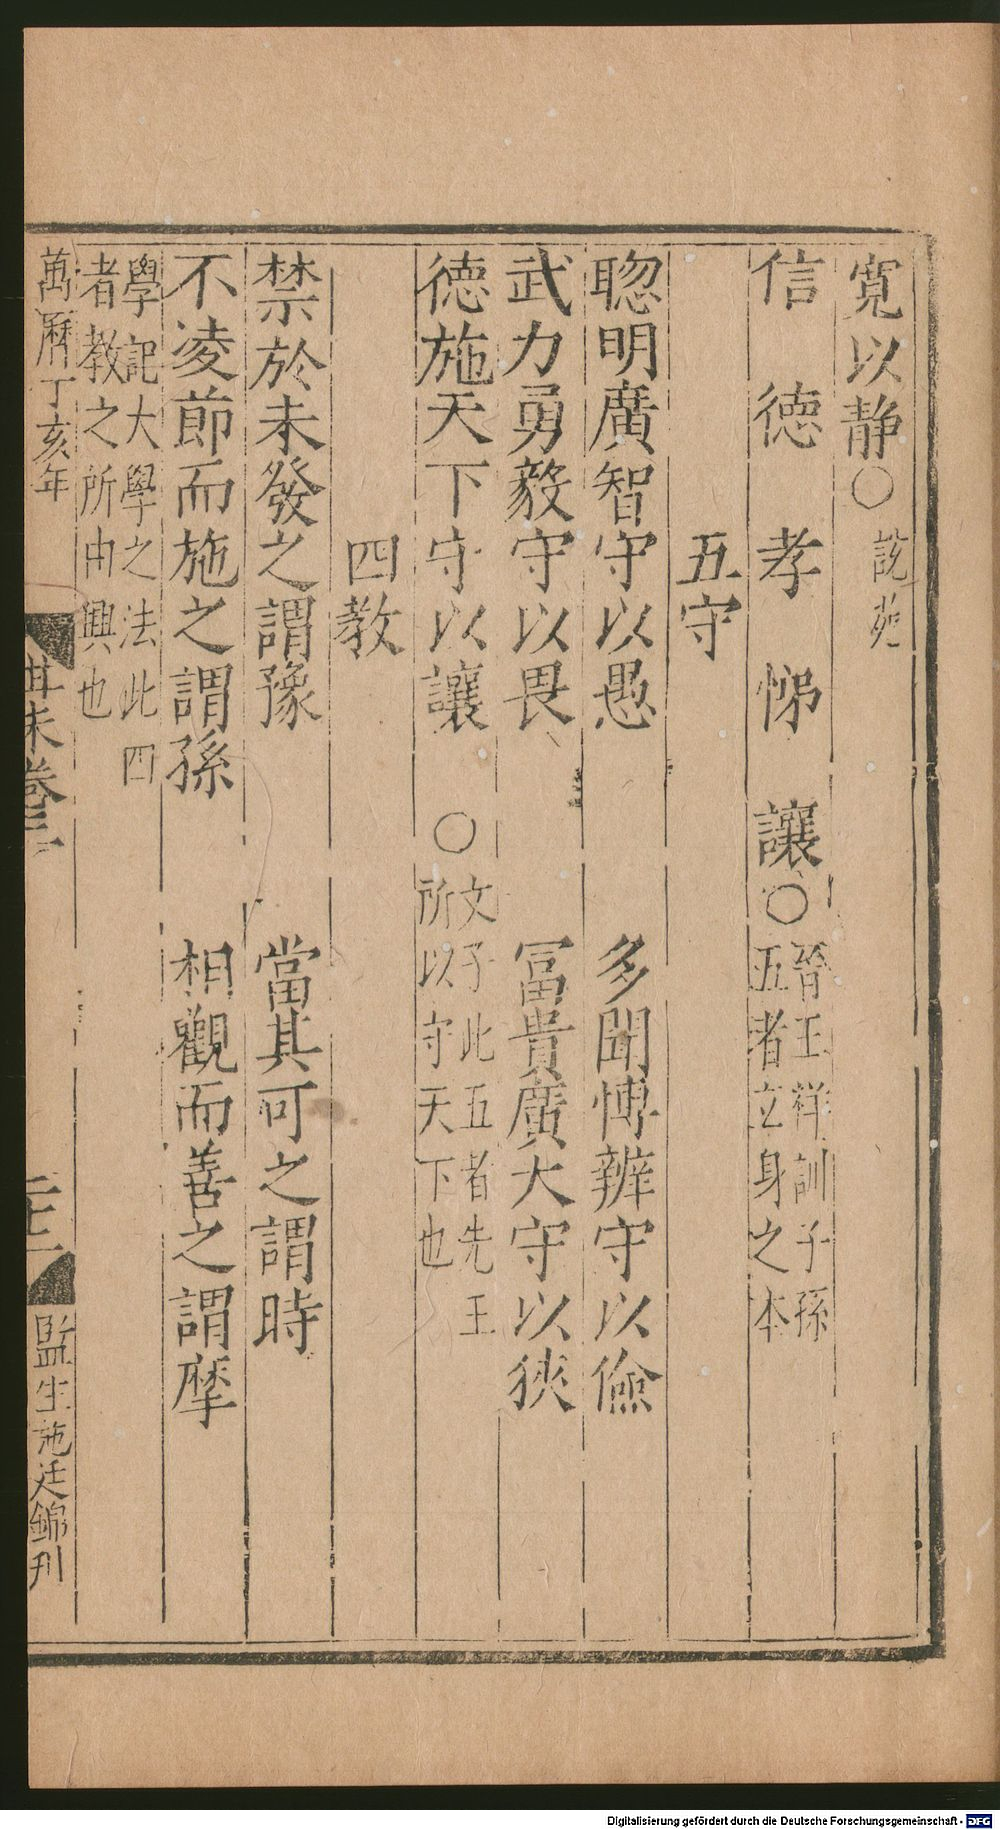 寬以静○說苑
信 德 孝 悌 讓○晉王祥訓子孫
五者立身之本
五守
聦明廣智守以愚 多聞博辨守以儉
武力勇毅守以畏 冨貴廣大守以狹
德施天下守以讓 ○文子此五者先王
所以守天下也
四教
禁於未發之謂豫 當其可之謂時
不凌節而施之謂孫 相觀而善之謂摩
學記大學之法此四
者教之所由興也
萬曆丁亥年
卷三
監生施廷錦刋
Digitalisierung gefördert durch die Deutsche Forschungsgemeinschaft - DFG